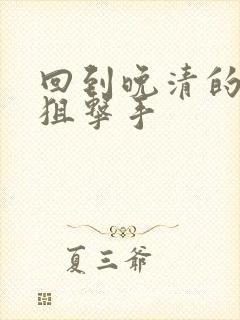 回到晚清的
狙擊手
夏三爺